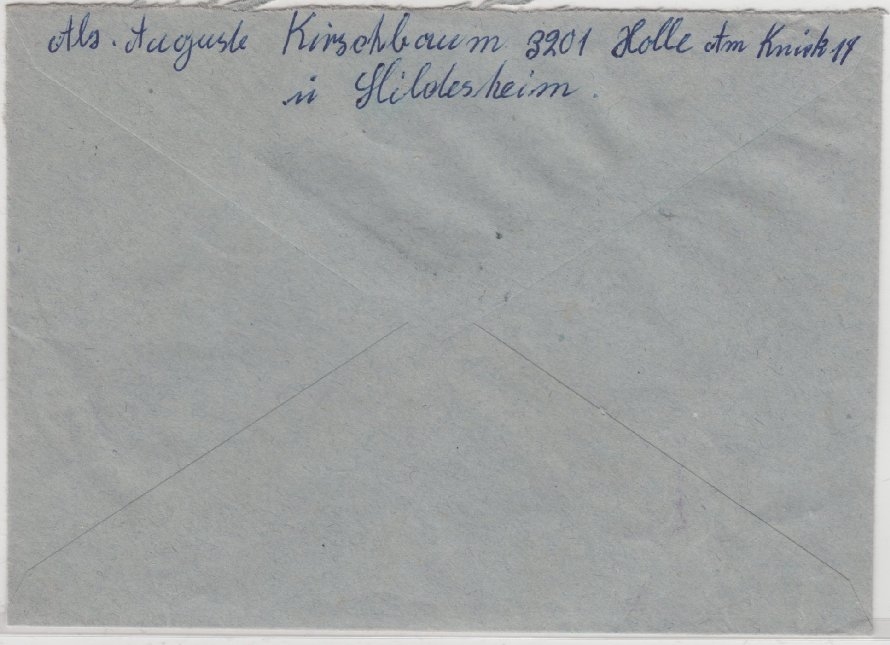 Abs. Auguste Kirschbaum 3201 Holle Am Knick 14
ü Hildesheim.